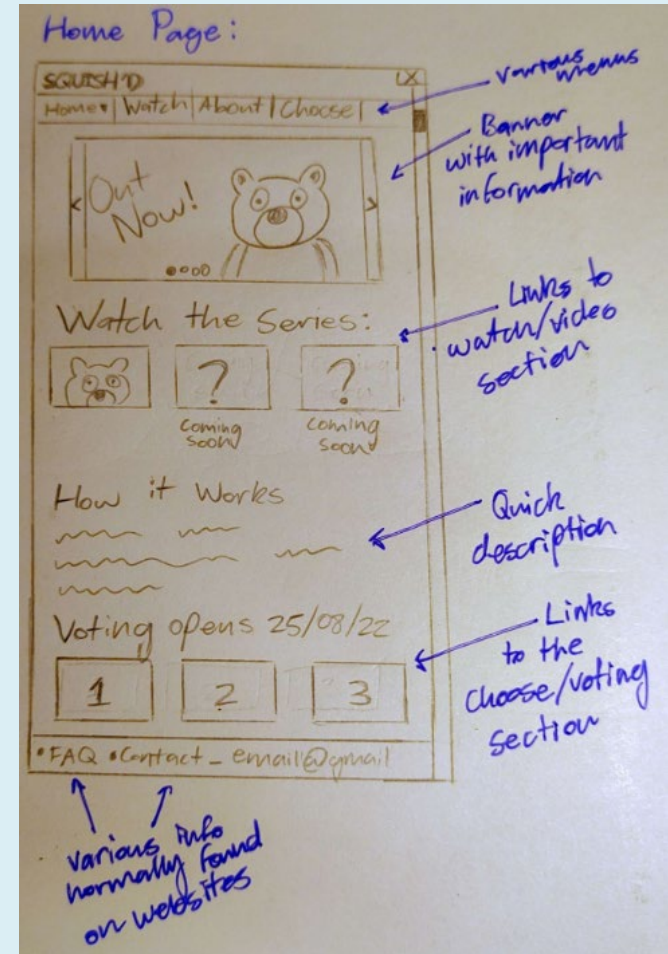 Home Page:
SQUISH'D
X
Home | Watch | About | Choose |
various menus
Banner
with important
information
< Out
Now! >
Watch the Series:
Links to
watch/video
section
? ?
coming
soon
coming
soon
How it Works
Quick
description
Voting opens 25/08/22
Links
to the
choose/voting
section
1 2 3
•FAQ •Contact - email@gmail
various info
normally found
on websites